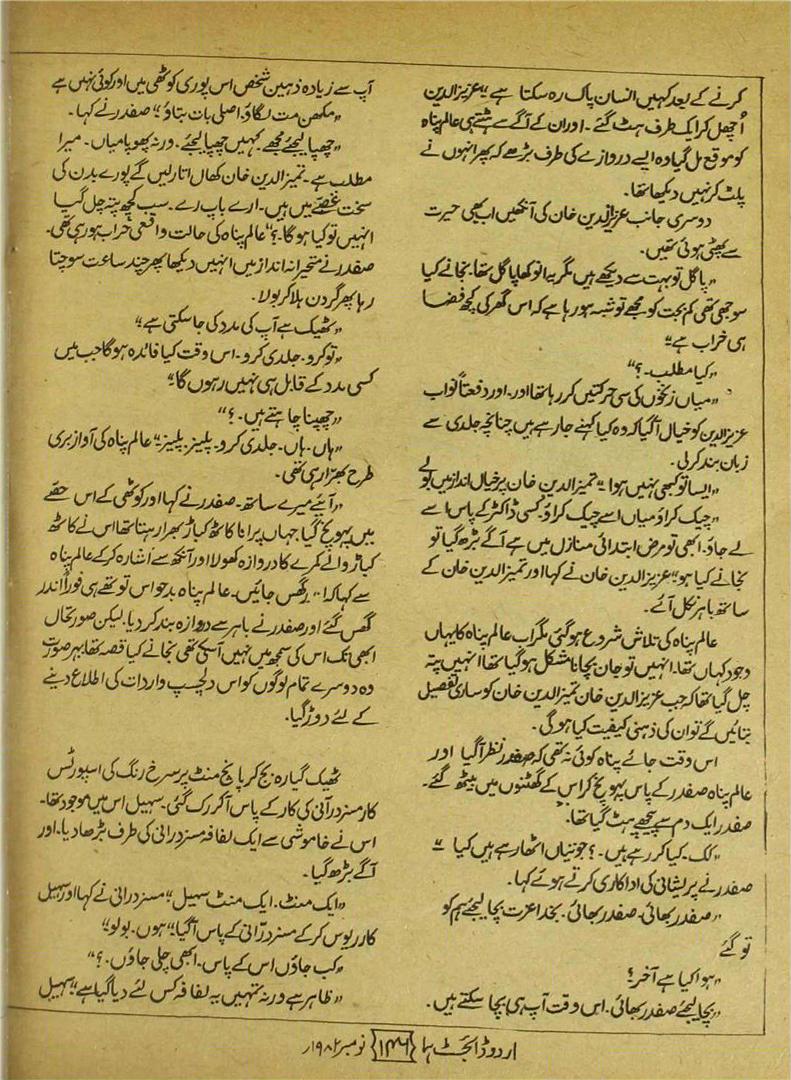 کرنے کے بعد کہیں انسان پاک رہ سکتا ہے“ عزیز الدین
اُچھل کر ایک طرف ہٹ گئے۔ اور ان کے آگے سے ہٹتے ہی عالم پناہ
کو موقع مل گیا وہ ایسے دروازے کی طرف بڑھے کہ پھر انہوں نے
پلٹ کر نہیں دیکھا تھا۔
دوسری جانب عزیز الدین خان کی آنکھیں اب بھی حیرت
سے پھٹی ہوئی تھیں۔
”پاگل تو بہت سے دیکھے ہیں مگر یہ انوکھا پاگل تھا۔ نجانے کیا
سوجھی تھی کم بخت کو مجھے تو شبہ ہو رہا ہے کہ اس گھر کی کچھ فضا
ہی خراب ہے“
”کیا مطلب۔؟“
”میاں زنخوں کی سی حرکتیں کر رہا تھا اور۔ اور دفعتاً نواب
عزیز الدین کو خیال آ گیا کہ وہ کیا کہنے جا رہے ہیں چنانچہ جلدی سے
زبان بند کر لی۔
”ایسا تو کبھی نہیں ہوا“ تمیز الدین خان پر خیال انداز میں بولے
”چیک کراؤ میاں اسے چیک کراؤ کسی ڈاکٹر کے پاس اسے
لے جاؤ۔ ابھی تو مرض ابتدائی منازل میں ہے آگے بڑھ گیا تو
نجانے کیا ہو“ عزیز الدین خان نے کہا اور تمیز الدین خان کے
ساتھ باہر نکل آئے۔
عالم پناہ کی تلاش شروع ہو گئی مگر اب عالم پناہ کا یہاں
وجود کہاں تھا۔ انہیں تو جان بچانا مشکل ہو گیا تھا انہیں پتہ
چل گیا تھا کہ جب عزیز الدین خان تمیز الدین خان کو ساری تفصیل
بتائیں گے تو ان کی ذہنی کیفیت کیا ہو گی۔
اس وقت جائے پناہ کوئی نہ تھی کہ صفدر نظر آ گیا اور
عالم پناہ صفدر کے پاس پہونچ کر اس کے گھٹنوں میں بیٹھ گئے۔
صفدر ایک دم سے پیچھے ہٹ گیا تھا۔
”کک۔ کیا کر رہے ہیں۔؟ جوتیاں اٹھا رہے ہیں کیا“
صفدر نے پریشانی کی اداکاری کرتے ہوئے کہا۔
”صفدر بھائی۔ صفدر بھائی۔ بخدا عزت بچا لیجئے ہم کو
تو گئے
”ہوا کیا ہے آخر؟
”بچا لیجئے صفدر بھائی۔ اس وقت آپ ہی بچا سکتے ہیں۔
آپ سے زیادہ ذہین شخص اس پوری کوٹھی میں اور کوئی نہیں ہے
”مکھن مت لگاؤ۔ اصلی بات بتاؤ“ صفدر نے کہا۔
”چھپا لیجئے مجھے کہیں چھپا لیجئے۔ ورنہ پھوپا میاں۔ میرا
مطلب ہے۔ تمیز الدین خان کھال اتار لیں گے پورے بدن کی
سخت غصے میں ہیں۔ ارے باپ رے۔ سب کچھ پتہ چل گیا
انہیں تو کیا ہو گا۔؟“ عالم پناہ کی حالت واقعی خراب ہو رہی تھی۔
صفدر نے متحیرانہ انداز میں انہیں دیکھا پھر چند ساعت سوچتا
رہا پھر گردن ہلا کر بولا۔
”ٹھیک ہے آپ کی مدد کی جا سکتی ہے“
”تو کرو۔ جلدی کرو۔ اس وقت کیا فائدہ ہو گا جب میں
کسی مدد کے قابل ہی نہیں رہوں گا“
”چھپنا چاہتے ہیں۔؟“
”ہاں۔ ہاں۔ جلدی کرو۔ پلیز۔ پلیز“ عالم پناہ کی آواز بری
طرح بھرّا رہی تھی۔
”آیئے میرے ساتھ۔ صفدر نے کہا اور کوٹھی کے اس حصے
میں پہونچ گیا۔ جہاں پرانا کاٹھ کباڑ بھرا رہتا تھا اس نے کاٹھ
کباڑ والے کمرے کا دروازہ کھولا اور آنکھ سے اشارہ کر کے عالم پناہ
سے کہا کہ ”گھس جائیں۔ عالم پناہ بدحواس تو تھے ہی فوراً اندر
گھس گئے اور صفدر نے باہر سے دروازہ بند کر دیا۔ لیکن صورتحال
ابھی تک اس کی سمجھ میں نہیں آ سکی تھی نجانے کیا قصہ تھا بہر صورت
وہ دوسرے تمام لوگوں کو اس دلچسپ واردات کی اطلاع دینے
کے لئے دوڑ گیا۔
ٹھیک گیارہ بج کر پانچ منٹ پر سرخ رنگ کی اسپورٹس
کار مسز درانی کی کار کے پاس آ کر رک گئی۔ سہیل اس میں موجود تھا۔
اس نے خاموشی سے ایک لفافہ مسز درانی کی طرف بڑھا دیا۔ اور
آگے بڑھ گیا۔
”ایک منٹ۔ ایک منٹ سہیل“ مسز درانی نے کہا اور سہیل
کار ریورس کر کے مسز درّانی کے پاس آ گیا“ ہوں۔ بولو“
”کب جاؤں اس کے پاس۔ ابھی چلی جاؤں۔؟“
”ظاہر ہے ورنہ تمہیں یہ لفافہ کس لئے دیا گیا ہے“ سہیل
اردو ڈائجسٹ ہما {۱۴۶} نومبر ۱۹۸۲ء